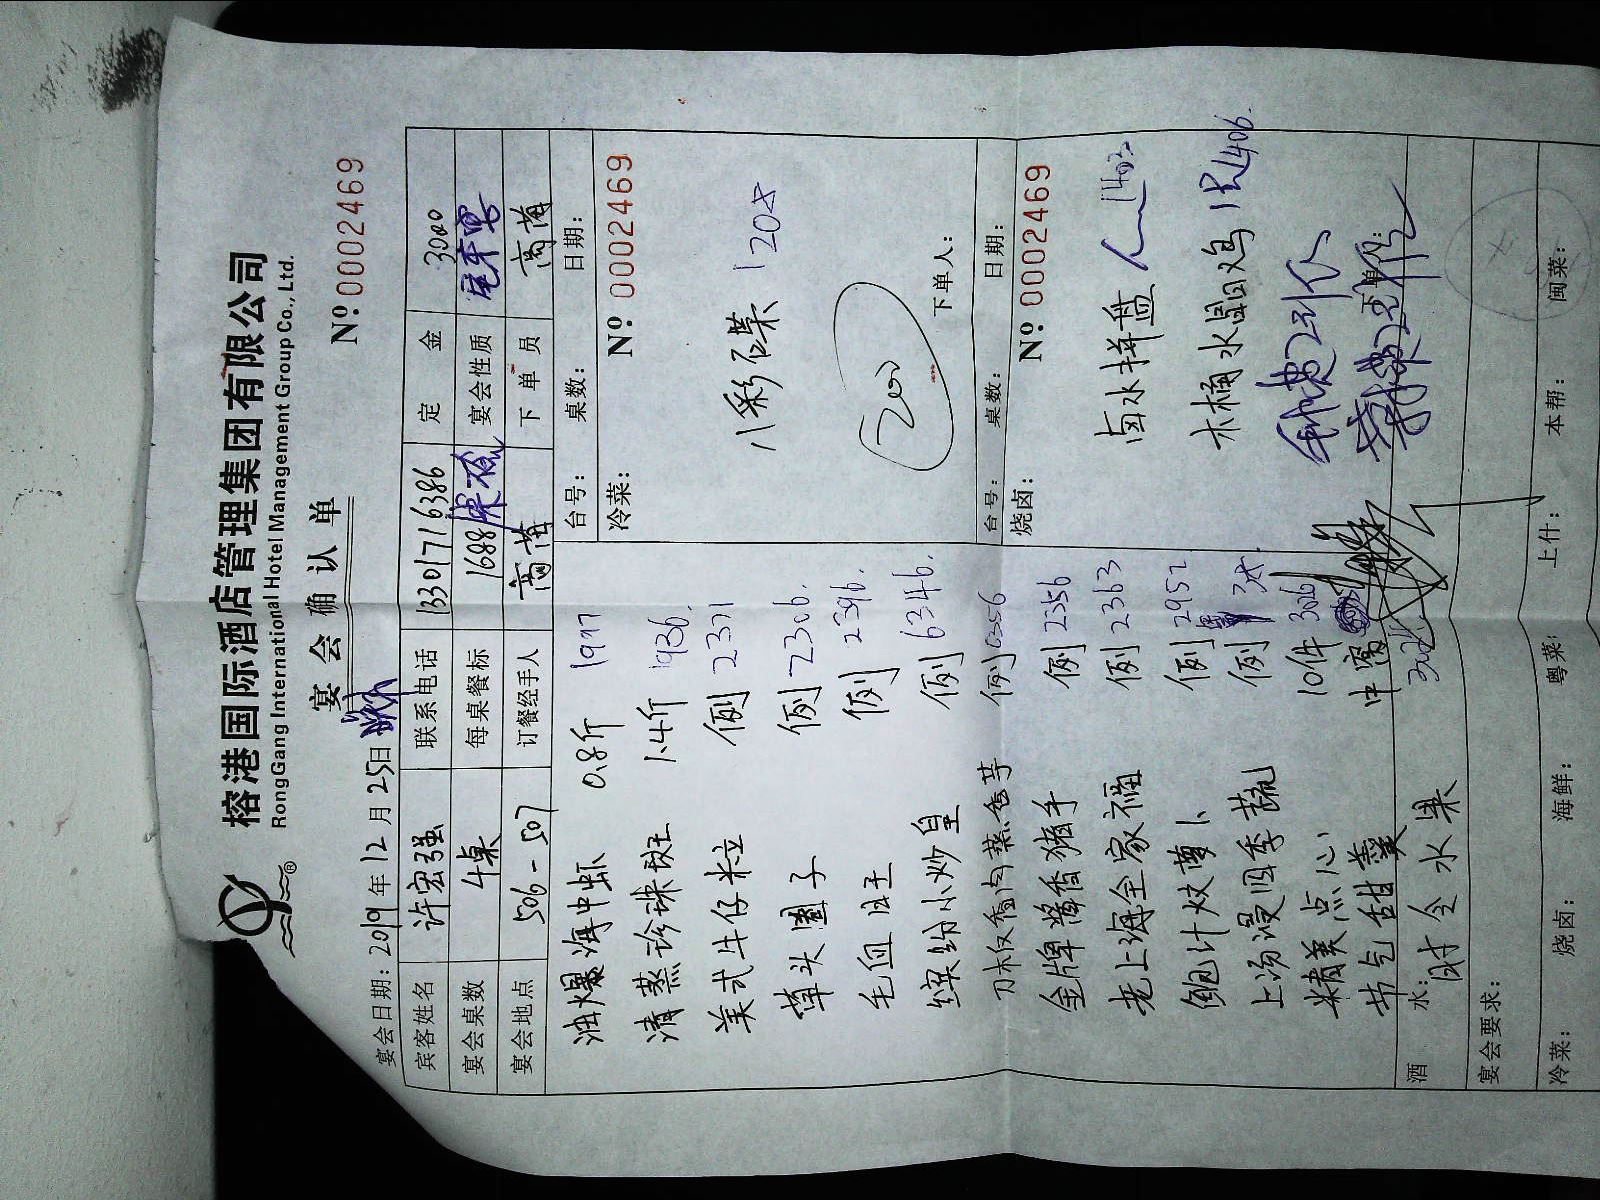 榕港国际酒店管理集团有限公司
RongGang International Hotel Management Group Co., Ltd.
宴会确认单
Nº 0002469
宴会日期: 2019年12月25日
宾客姓名 许宏强 联系电话 13301716386 定金 3000
宴会桌数 4桌 每桌餐标 1688 宴会性质
宴会地点 506-507 订餐经手人 下单员
油爆海中虾 0.8斤
清蒸珍珠斑 1.4斤 1936.
美式牛仔粒 例 2371
草头圈子 例 2306.
毛血旺 例 2396.
缤纷小炒皇 例 6346.
刀板香肉蒸香芋 例 6356
金牌酱香猪手 例 2356
老上海全家福 例 2363
鲍汁炆萝卜 例 2952
上汤浸四季蔬 例
精美点心 10件 3026
节气甜羹 中窝
时令水果
台号: 桌数: 日期:
冷菜: Nº 0002469
八彩碟 1208
200
下单人:
台号: 桌数: 日期:
烧卤: Nº 0002469
卤水拼盘 1402
木桶水晶鸡 1只 1406.
下单人:
酒水:
宴会要求:
冷菜: 烧卤: 海鲜: 粤菜: 上什: 本帮: 闽菜: